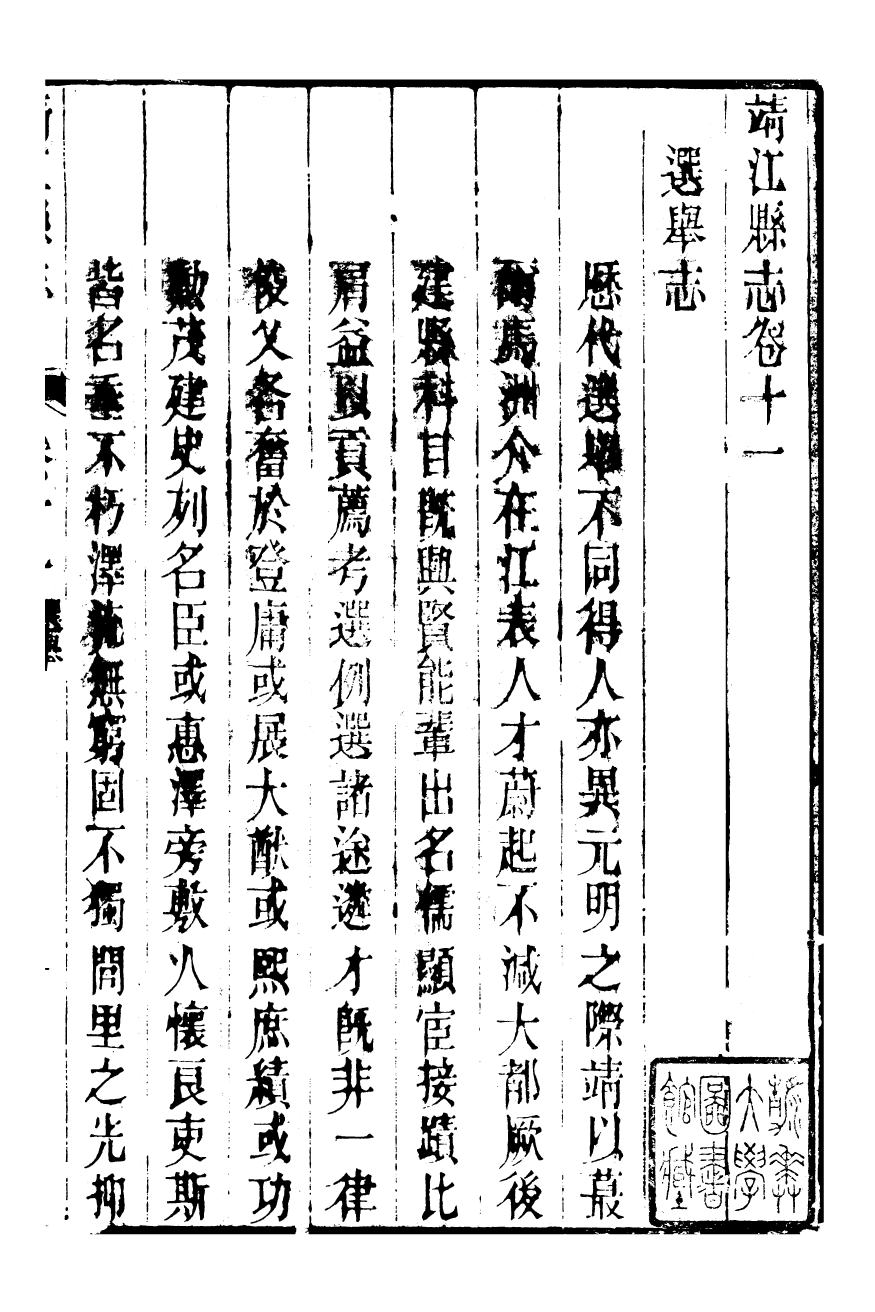 靖江縣志卷十一
選舉志
歷代選舉不同得人亦異元明之際靖以蕞
爾馬洲介在江表人才蔚起不減大都厥後
建縣科目既興賢能輩出名儒顯宦接蹟比
肩益以貢薦考選例選諸途遴才既非一律
俊乂各奮於登庸或展大猷或熙庶績或功
勳茂建史列名臣或惠澤旁敷人懷良吏斯
皆名垂不朽澤流無窮固不獨閭里之光抑
燕京大學圖書館藏